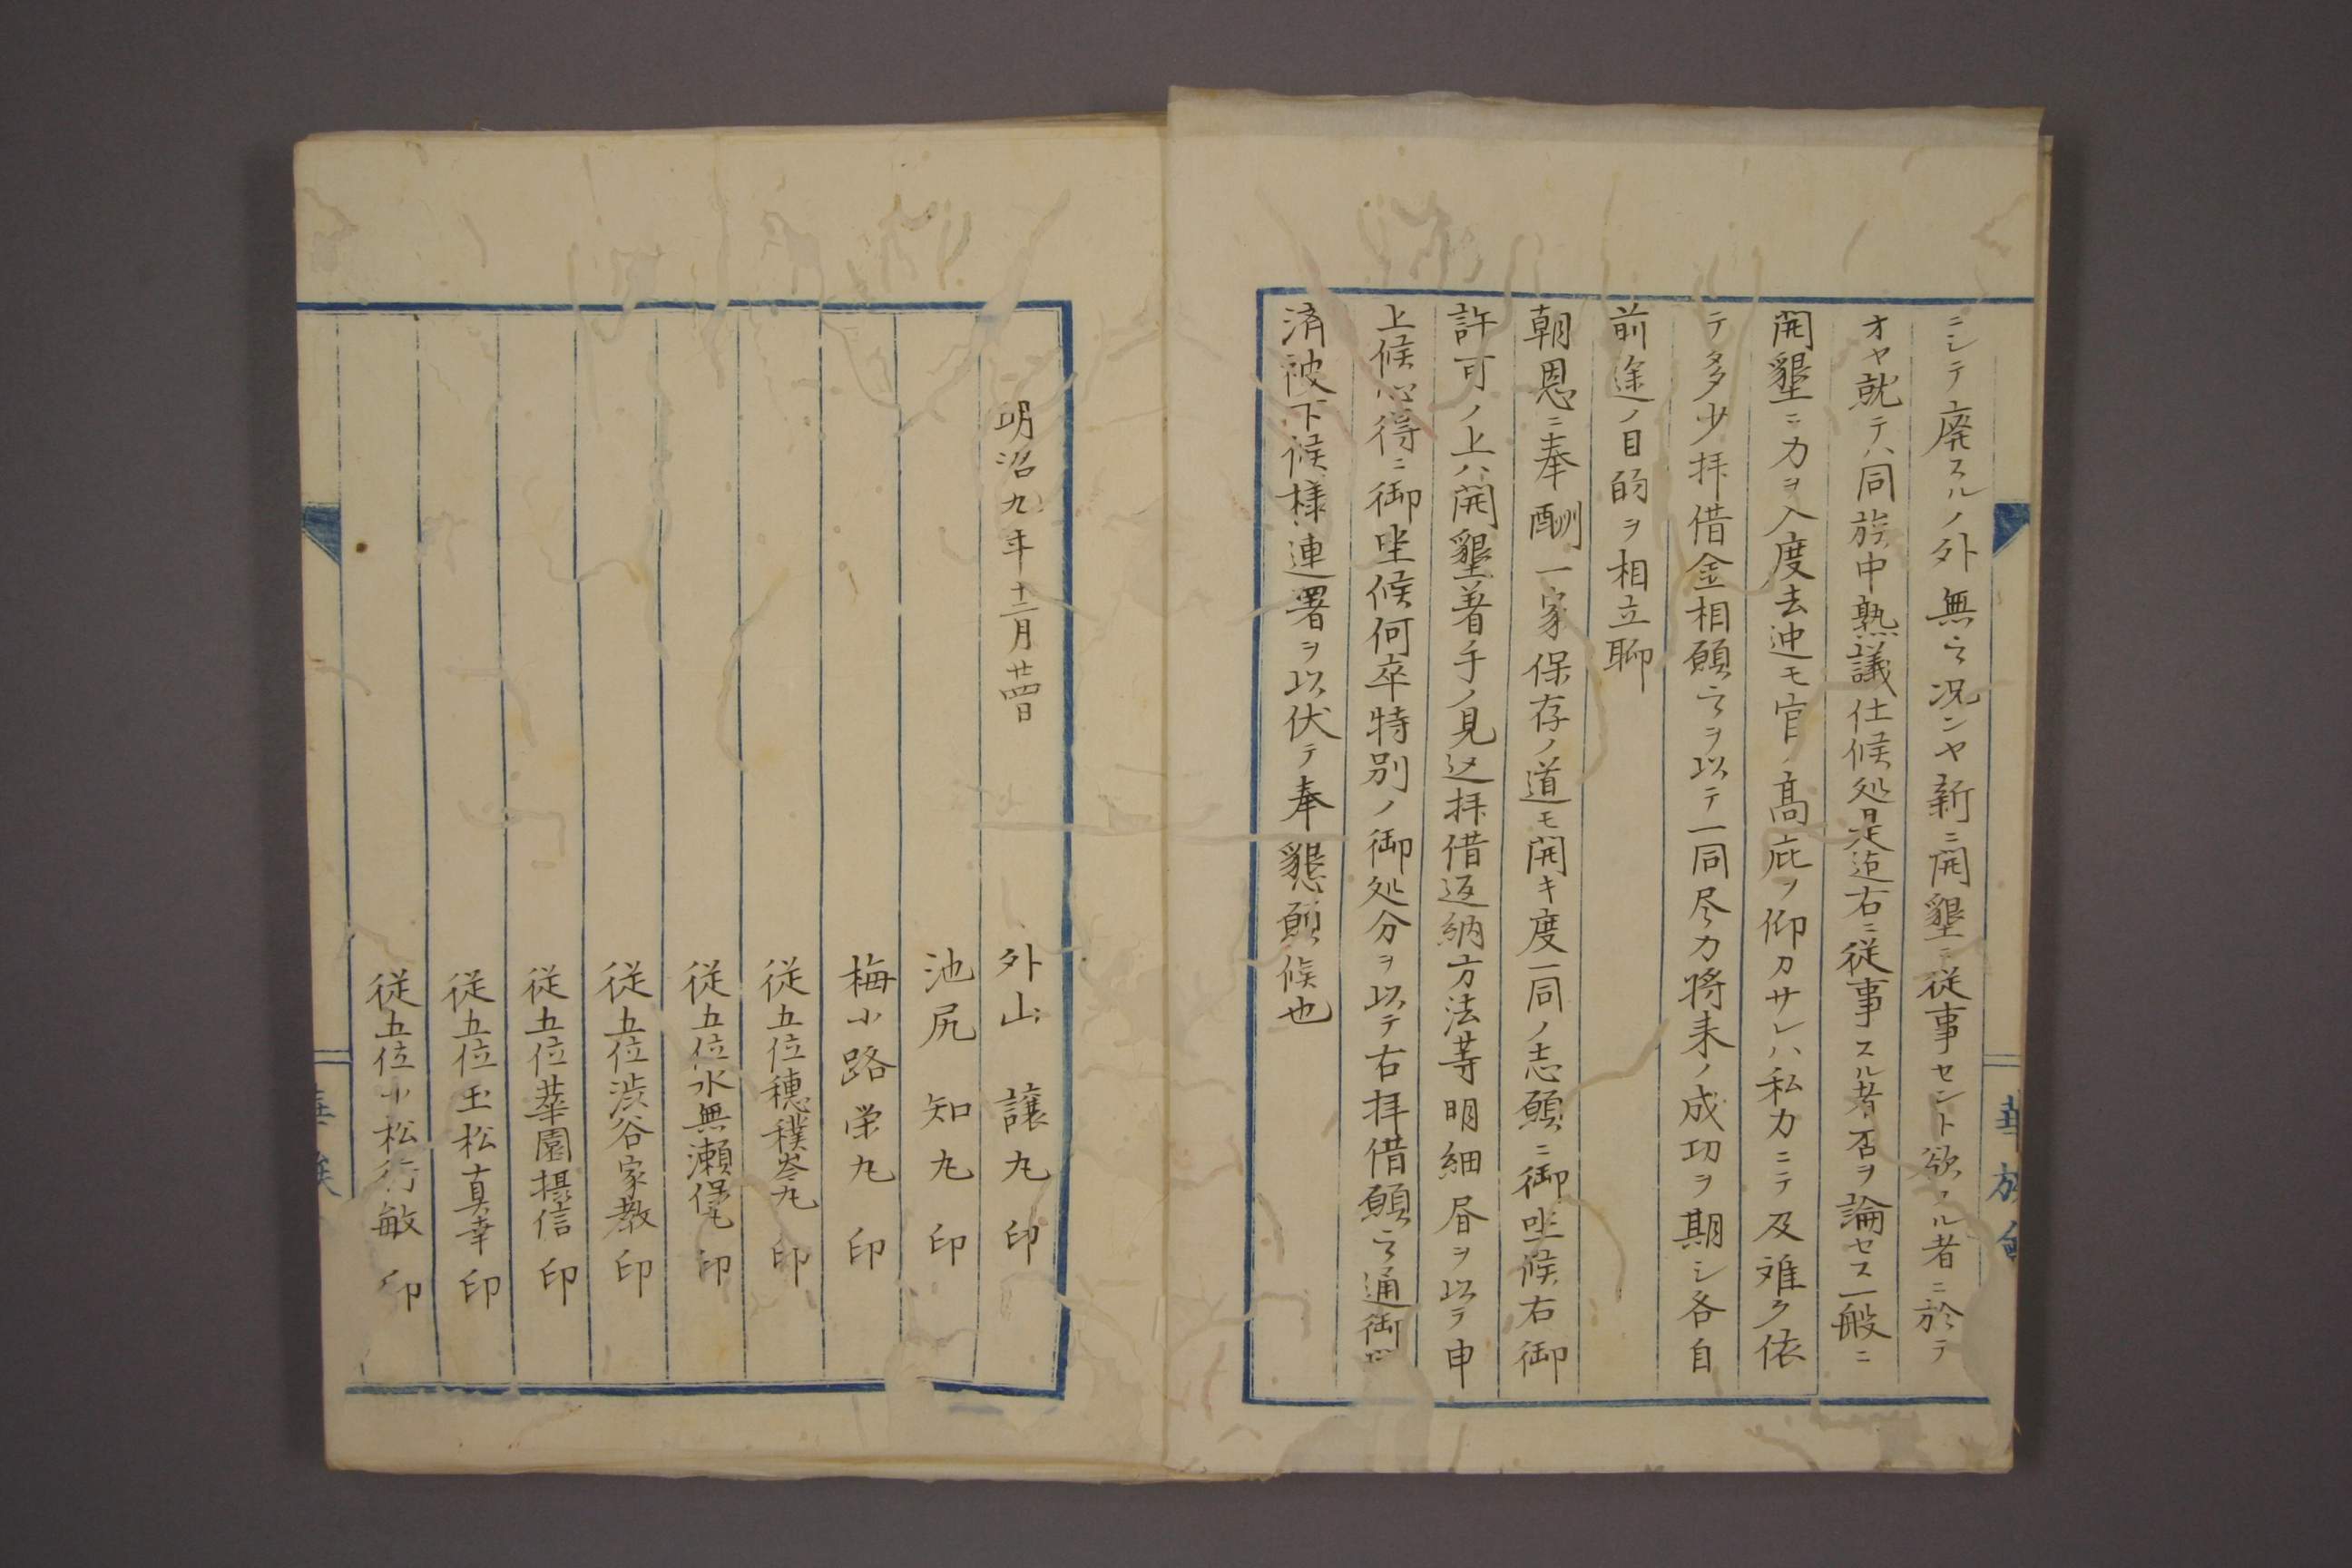 ニシテ廃スルノ外無之况ンヤ新ニ開墾ニ従事セント欲スル者ニ於テ
オヤ就テハ同族中熟議仕候処是迄右ニ従事スル者否ヲ論セス一般ニ
開墾ニカヲ入度去迚モ官ノ高庇ヲ仰カサレハ私力ニテ及難ク依
テ多少拝借金相願之ヲ以テ一同尽力将来ノ成功ヲ期シ各自
前途ノ目的ヲ相立聊
朝恩ニ奉酬一家保存ノ道モ開キ度一同ノ志願ニ御坐候右御
許可ノ上ハ開墾着手ノ見込拝借返納方法等明細昼ヲ以テ申
上候心得ニ御坐候何卒特別ノ御処分ヲ以テ右拝借願之通御
済被下候様連署ヲ以伏テ奉懇願候也
華族会
明治九年十二月廿四日
外山譲丸 印
池尻知丸 印
梅小路栄丸 印
従五位穂穙岺丸 印
従五位水無瀬保丸 印
従五位渋谷家教 印
従五位華園摂信 印
従五位玉松真幸 印
従五位小松行敏 印
華族